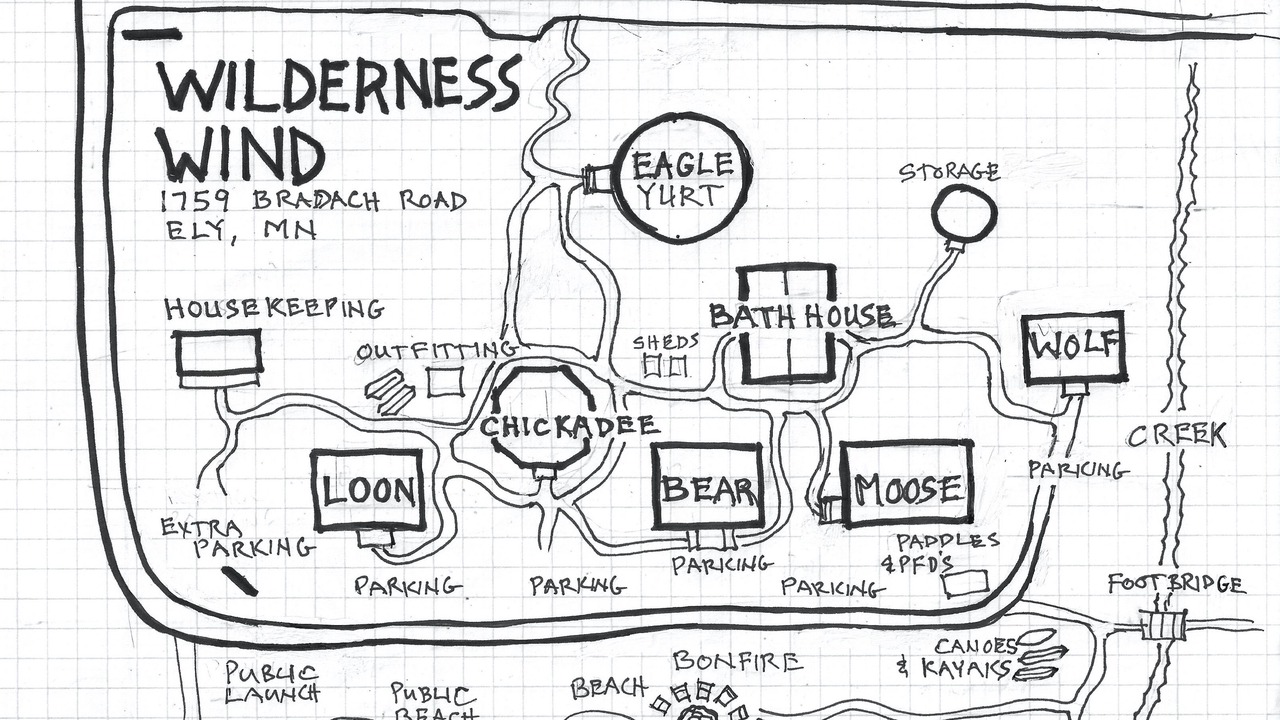 WILDERNESS
WIND
1759 BRADACH ROAD
ELY, MN
EAGLE
YURT
STORAGE
HOUSEKEEPING
BATH HOUSE
OUTFITTING
SHEDS
WOLF
CHICKADEE
CREEK
LOON
BEAR
MOOSE
PARKING
EXTRA
PARKING
PADDLES
& PFD'S
PARKING
PARKING
PARKING
PARKING
FOOT BRIDGE
CANOES
& KAYAKS
PUBLIC
LAUNCH
PUBLIC
BEACH
BEACH
BONFIRE